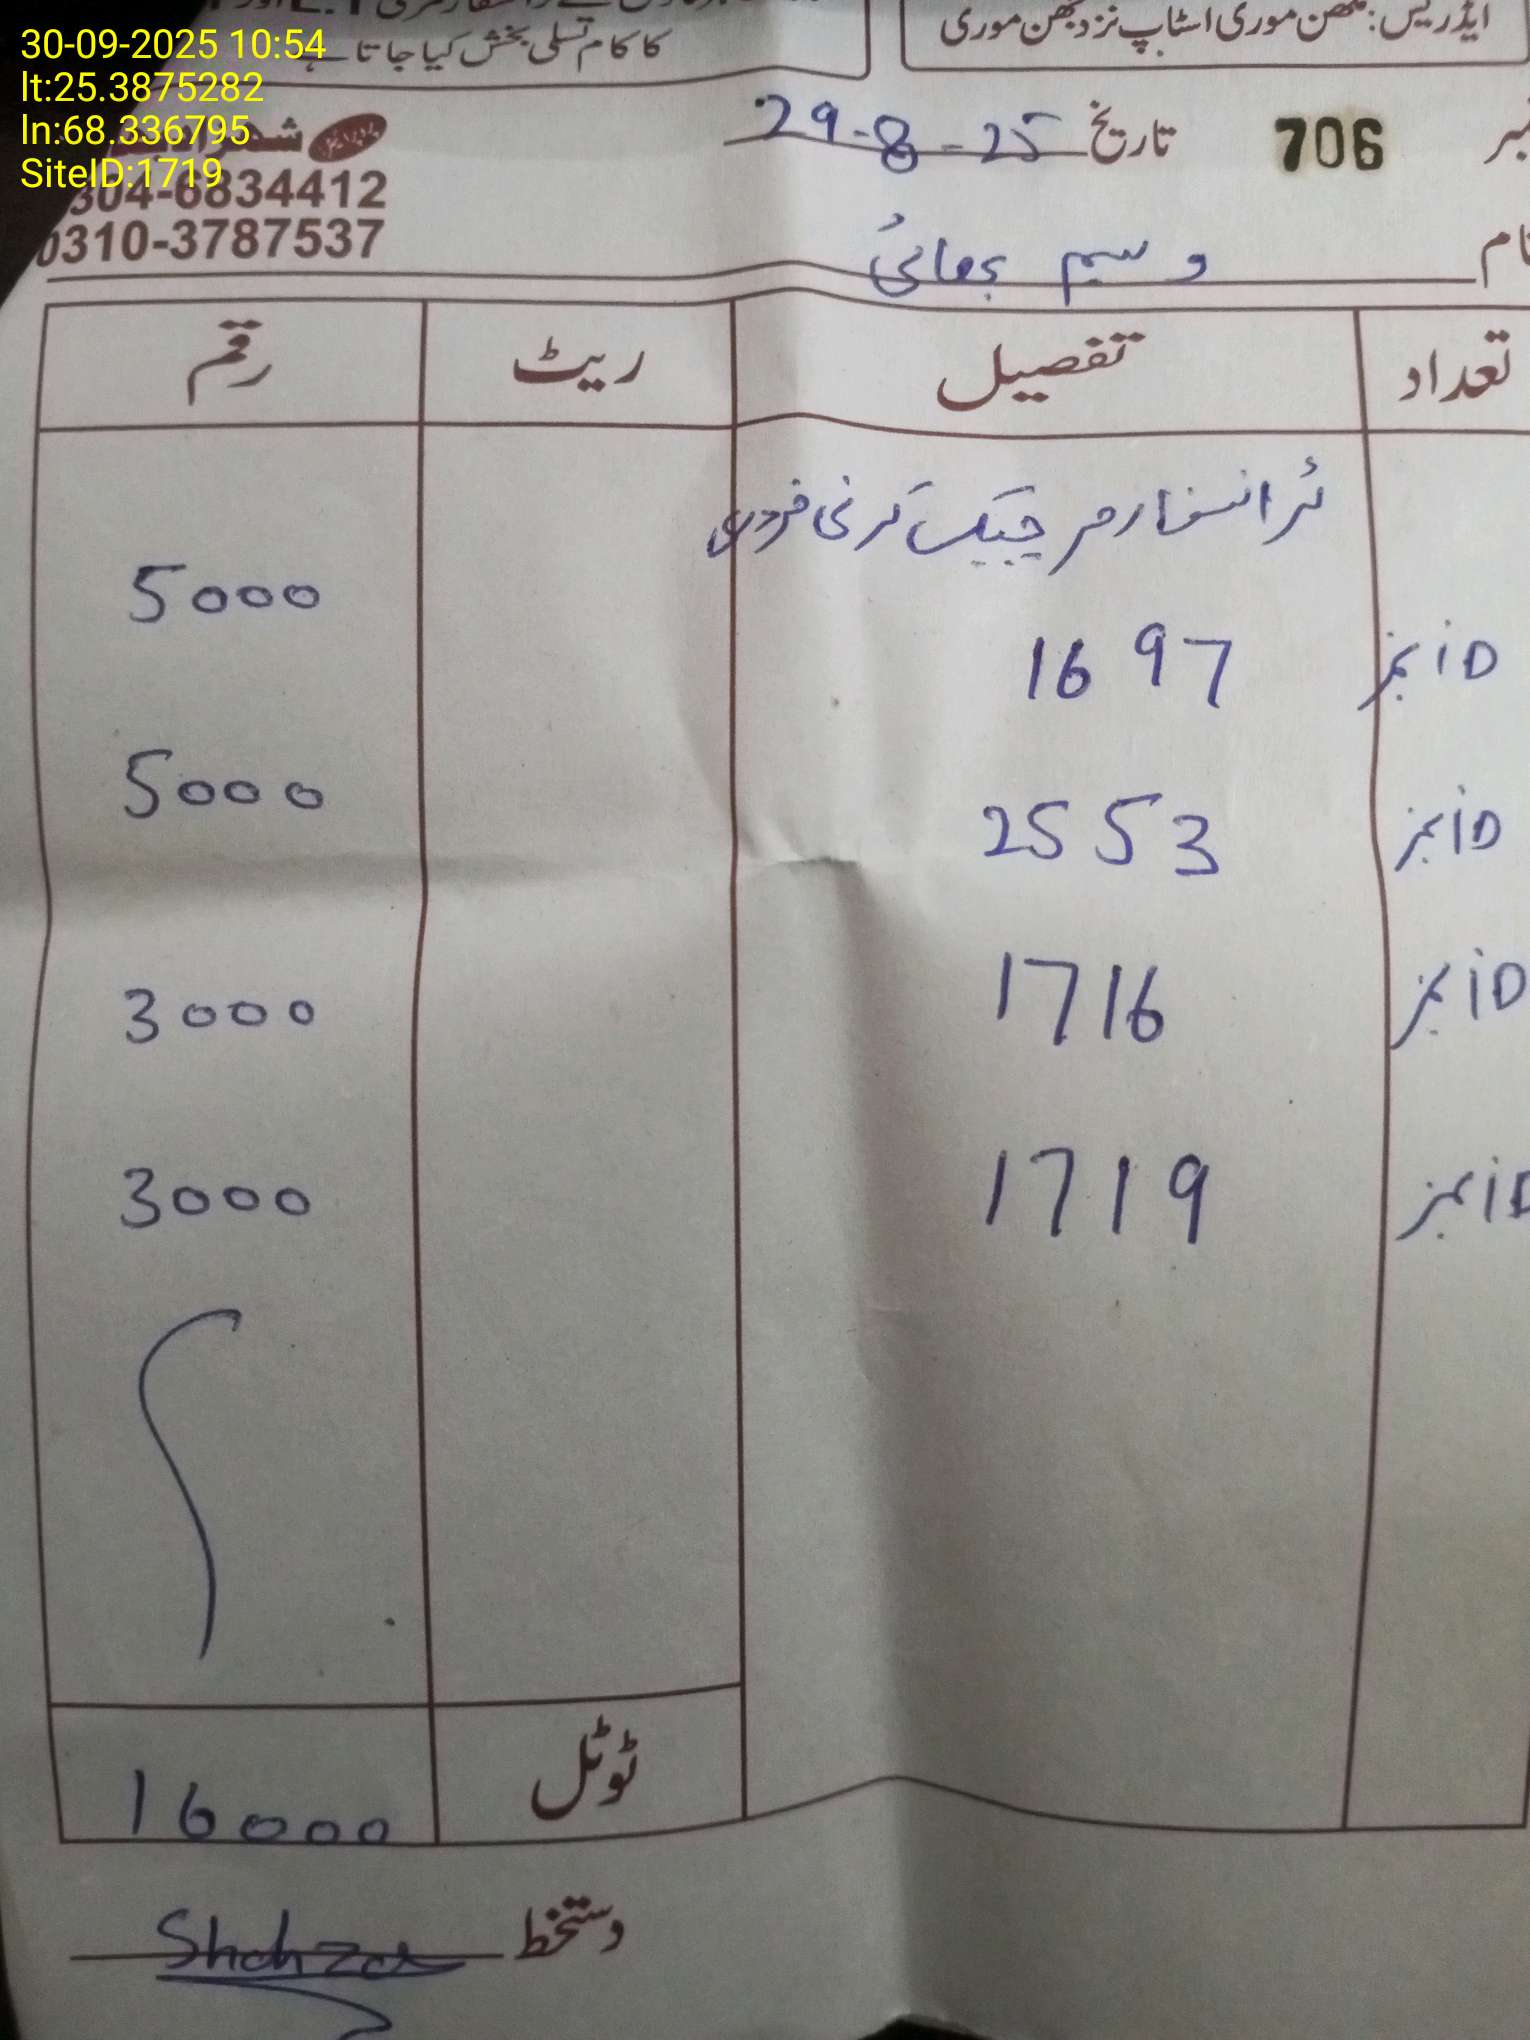 30-09-2025 10:54
lt:25.3875282
ln:68.336795
SiteID:1719
کا کام تسلی بخش کیا جاتا ہے
ایڈریس: مچھن موری اسٹاپ نزد بھن موری
706
تاریخ 29-8-25
304-6834412
0310-3787537
نام وسیم بھائی
تعداد تفصیل ریٹ رقم
ٹرانسفارمر چیک کرنی مزدوری
5000
iD نمبر 1697
5000
iD نمبر 2553
iD نمبر 1716 3000
iD نمبر 1719 3000
ٹوٹل 16000
دستخط Shahzad